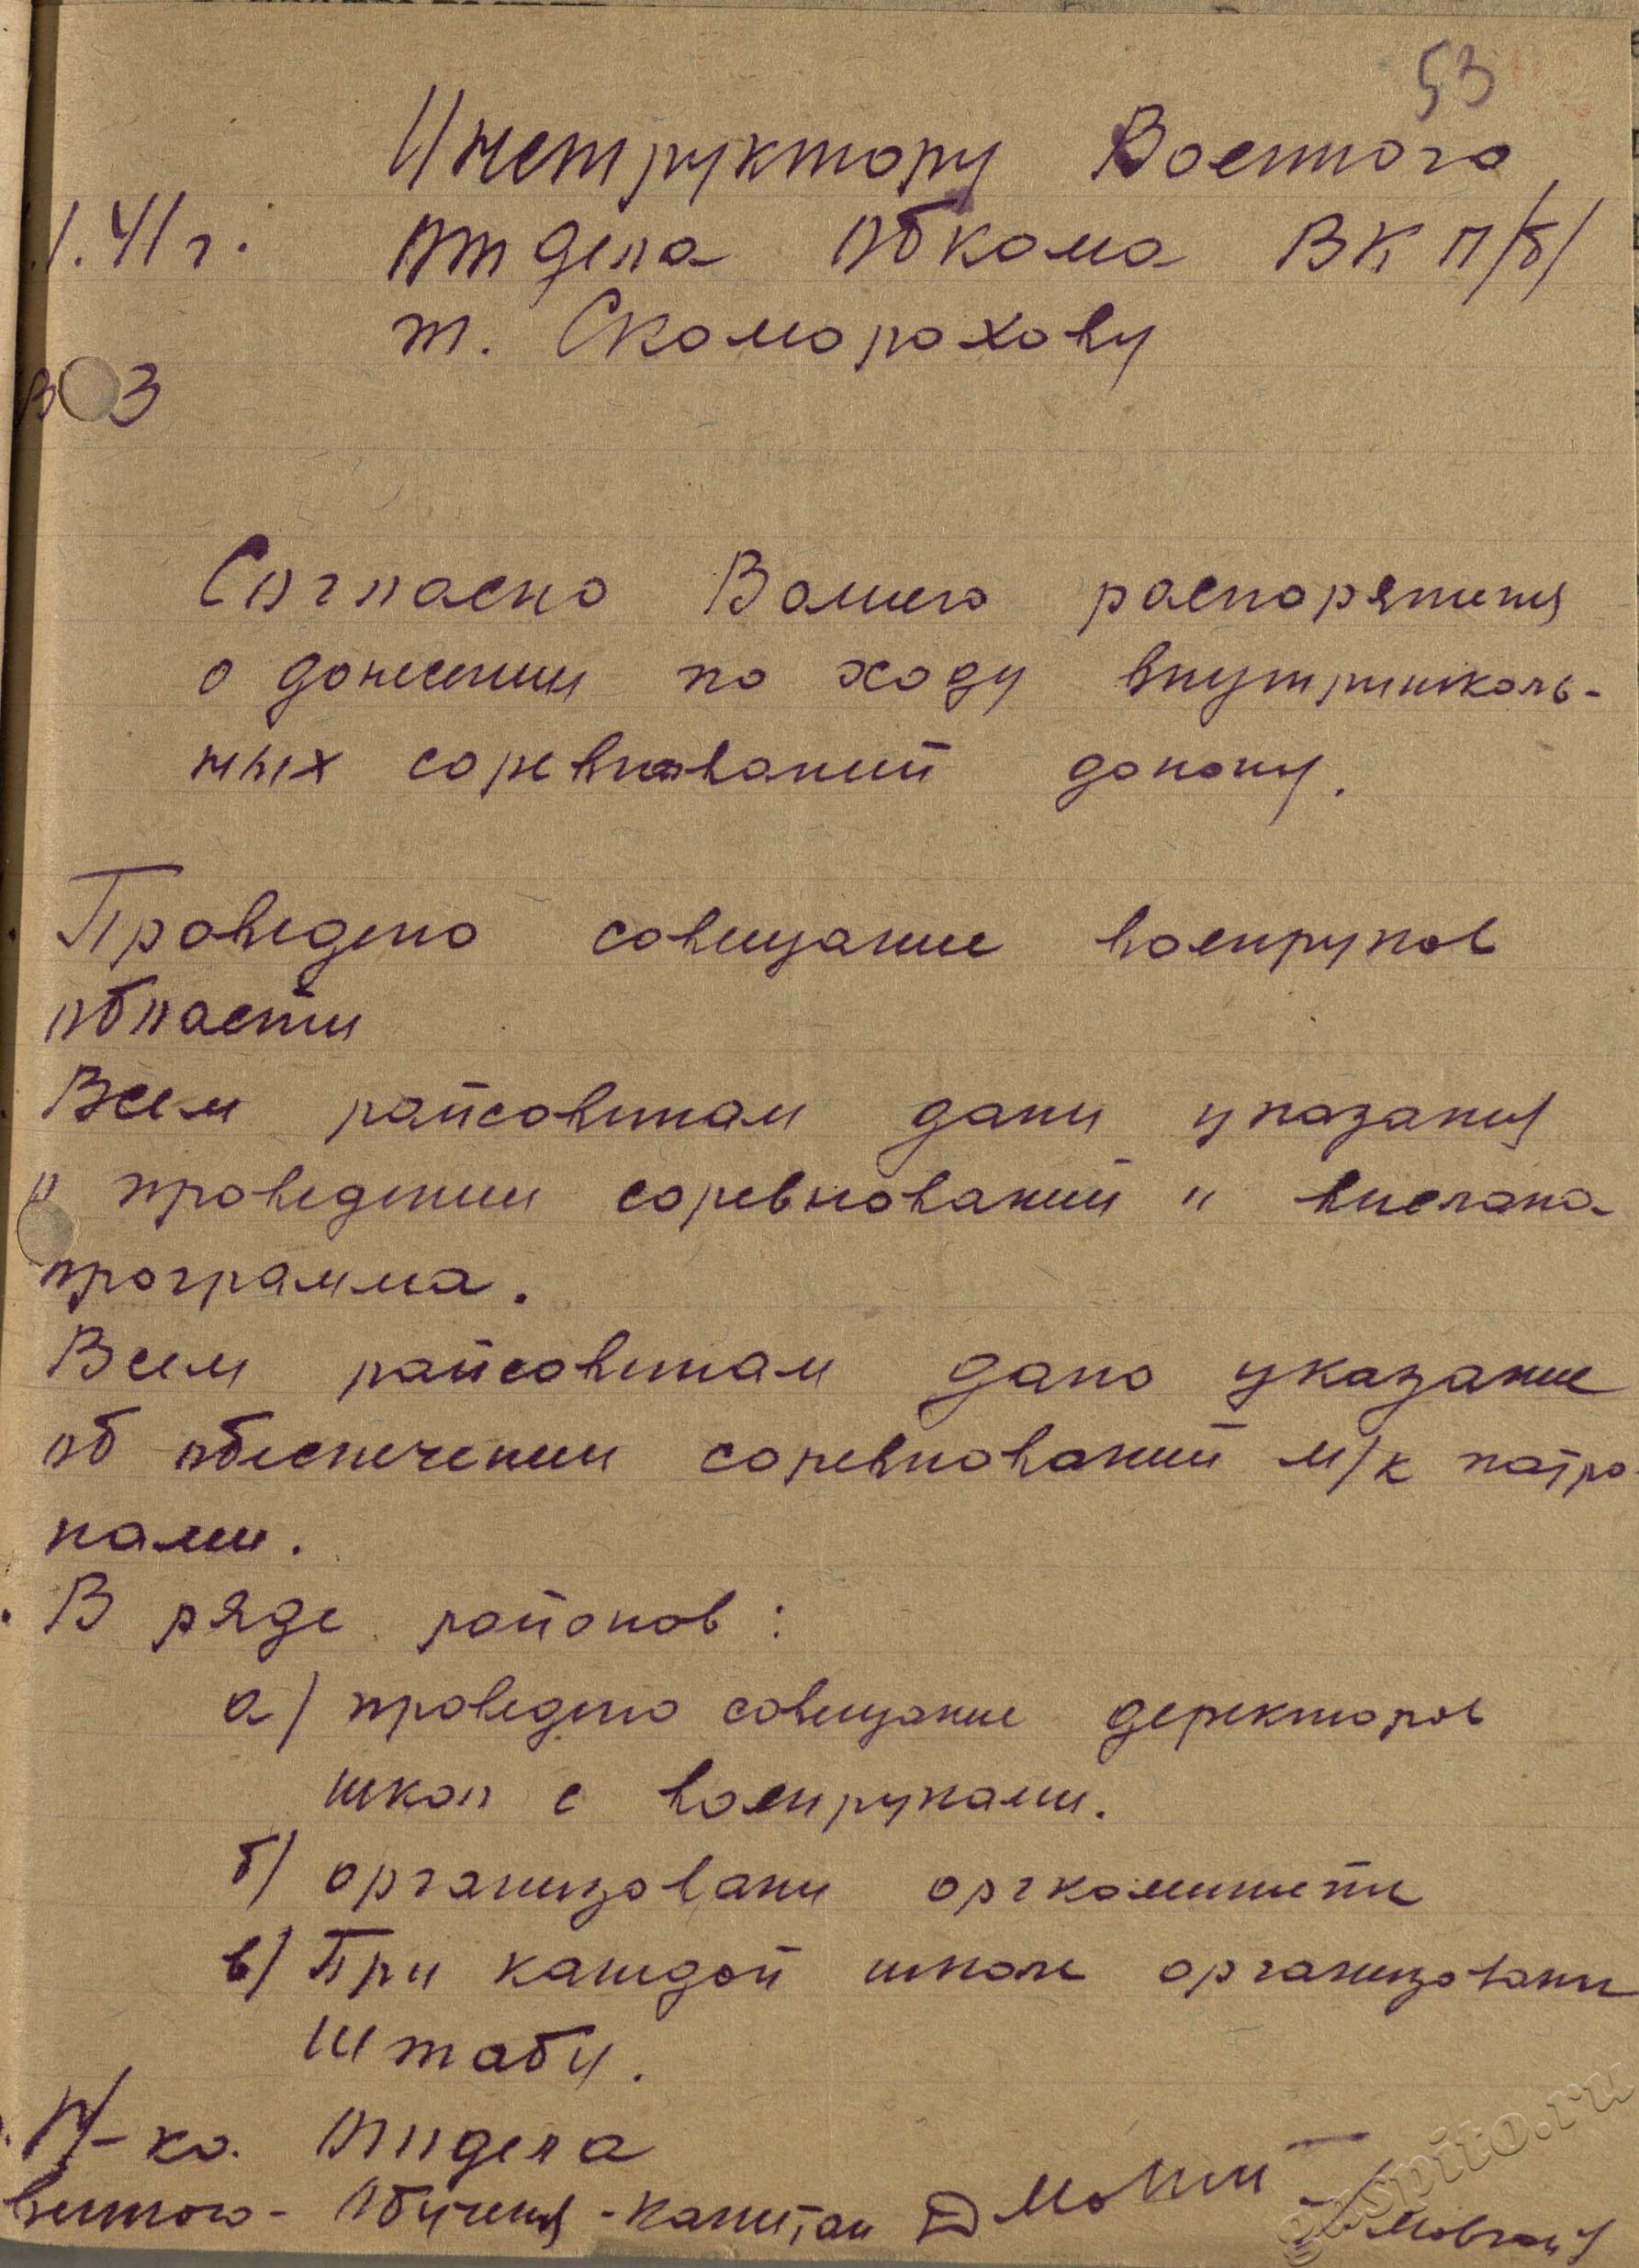 53
Инструктору Военного
1.41 г. отдела обкома ВКП/б/
т. Скоморохову
3
Согласно Вашего распоряжения
о донесении по ходу внутришколь-
ных соревнований доношу.
Проведено совещание военруков
области
Всем райсоветам даны указания
о проведении соревнований и выслана
программа.
Всем райсоветам дано указание
об обеспечении соревнований м/к патро-
нами.
В ряде районов:
а/ проведено совещание деректоров
школ с военруками.
б/ организованы оркомитеты
в/ При каждой школе организованы
штабы.
Н-ка. Отдела
обучения - капитан
gaspito.ru